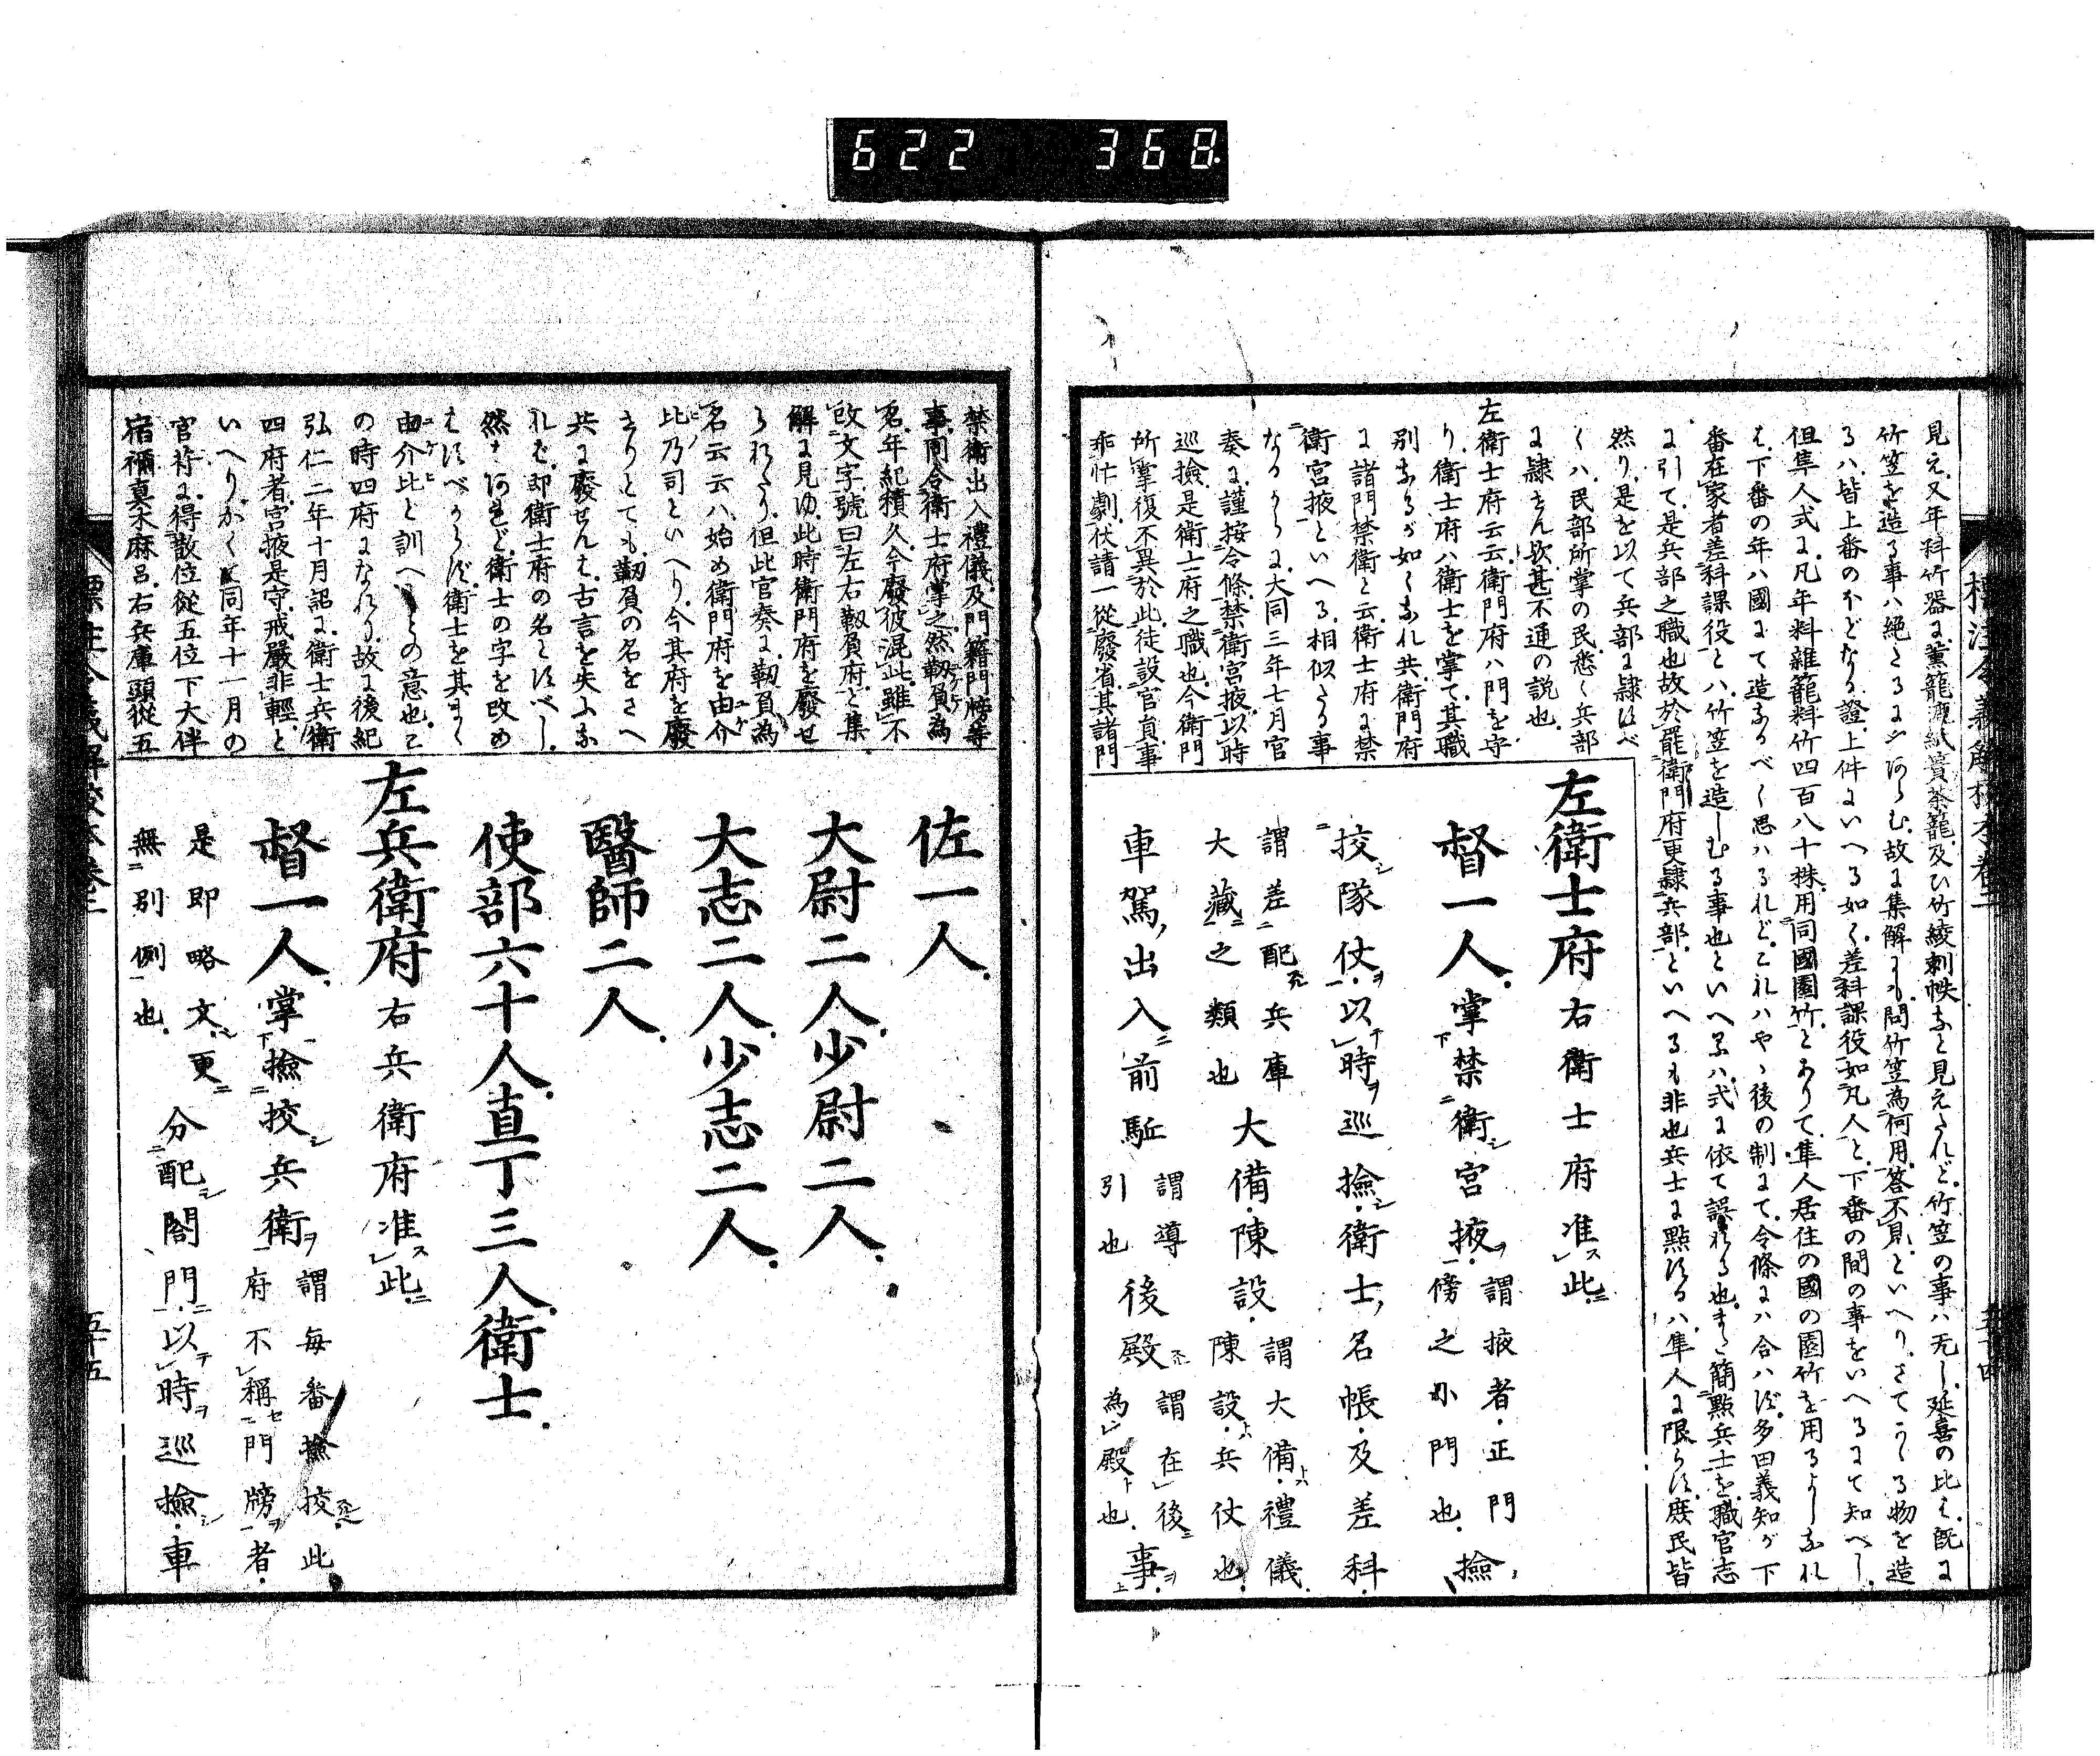 622 368
見え、又年料竹器に、薫籠漉紙簀茶籠、及び竹綾刺帙など見えたれど、竹笠の事ハ无し、延喜の比ハ、既に
竹笠を造る事ハ絶たるにやあらむ、故に集解にも、問竹笠為何用、答不見、といへり、さてかゝる物を造
るハ、皆上番のほどなる證、上件にいへる如く、差科課役、如凡人と、下番の間の事をいへるにて知べし、
但隼人式に、凡年料雜籠料竹四百八十株、用同國園竹、とありて、隼人居住の國の園竹を用るよしなれ
ば、下番の年ハ國にて造るべく思ハるれど、これハやゝ後の制にて、令條にハ合ハず、多田義知が下
番在家者差科課役とハ、竹笠を造しむる事也といへるハ、式に依て誤れる也、また簡點兵士を、職官志
に引て、是兵部之職也、故於罷衛門府、更隷兵部、といへるも非也、兵士に點ずるハ隼人に限らず、庶民皆
然り、是を以て兵部に隷すべ
くハ、民部所掌の民、悉く兵部
に隷せん歟、甚不通の説也、
左衛士府云云、衛門府ハ門を守
り、衛士府ハ衛士を掌て、其職
別なるが如くなれ共、衛門府
に諸門禁衛と云、衛士府に禁
衛宮掖といへる、相似たる事
なるからに、大同三年七月官
奏に、謹按令條、禁衛宮掖、以時
巡撿、是衛士府之職也、今衛門
所掌、復不異於此、徒設官員、事
乖忙劇、伏請一從廢省、其諸門
左衛士府 右衛士府准此
督一人 掌禁衛宮掖 謂掖者正門
傍之小門也 撿
挍隊仗以時巡撿衛士名帳及差科
謂差配兵庫
大藏之類也 大備陳設 謂大備禮儀
陳設兵仗也
車駕出入前駈 謂導
引也 後殿 謂在後
為殿也 事
禁衛出入禮儀、及門籍門牓等
事、同令衛士府掌之、然靱負為
名、年紀積久、今廢彼混此、雖不
改文字、號曰左右靱負府、と集
解に見ゆ、此時衛門府を廢せ
られたり、但此官奏に、靱負為
名云云ハ、始め衛門府を由介
比乃司といへり、今其府を廢
せりとても、靱負の名をさへ
共に廢せんハ、古言を失ふな
れバ、即衛士府の名とすべし、
然ハあれど、衛士の字を改め
ばすべからず、衛士を其まゝ
由介比と訓へとの意也、こ
の時四府になれり、故に後紀
弘仁二年十月詔に、衛士兵衛
四府者、宮掖是守、戒嚴非輕、と
いへり、かくて同年十一月の
官符に、得散位從五位下大伴
宿禰真木麻呂、右兵庫頭從五
佐一人
大尉二人少尉二人
大志二人少志二人
醫師二人
使部六十人直丁三人衛士
左兵衛府 右兵衛府准此
督一人 掌撿挍兵衛 謂毎番撿挍此
府不稱門牓者
是即略文更
無別例也 分配閤門以時巡撿車
標注令義解挍本卷二
五十四
五十五